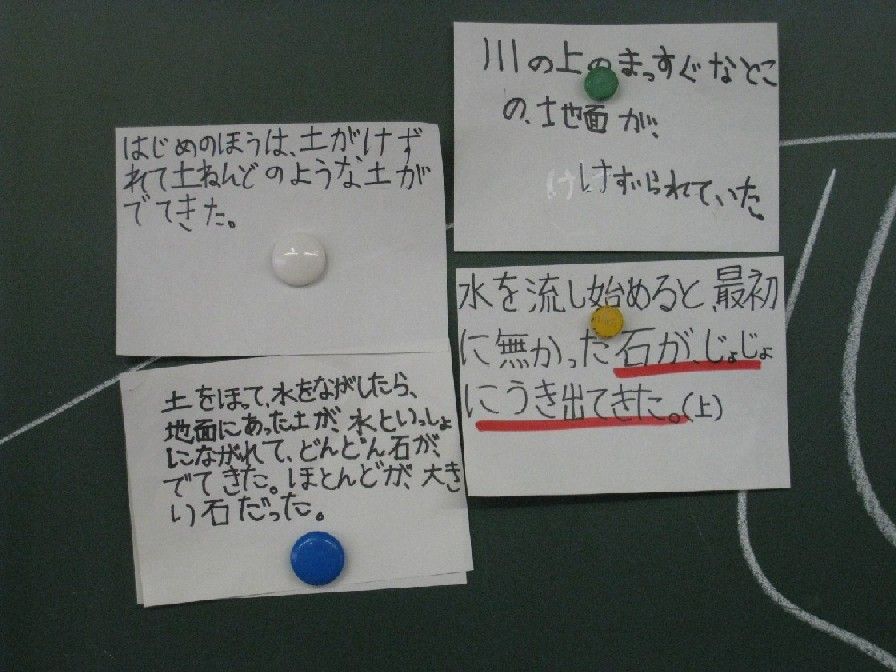 はじめのほうは、土がけず
れて土ねんどのような土が
でてきた。
川の上のまっすぐなとこ
の、地面が、
けずられていた。
土をほって、水をながしたら、
地面にあった土が、水といっしょ
にながれて、どんどん石が、
でてきた。ほとんどが、大き
い石だった。
水を流し始めると、最初
に無かった石が、じょじょ
にうき出てきた。(上)